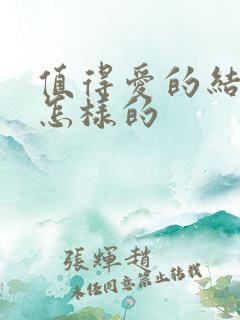 值得愛的結
怎樣的
張輝趙
未任同意禁止轉載